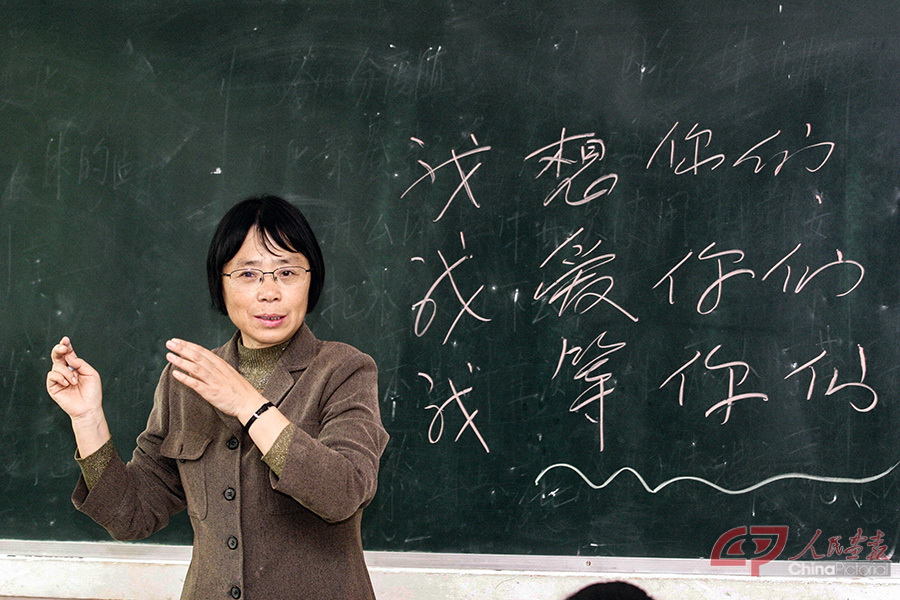 我想你们
我爱你们
我等你们
人民画报
ChinaPictorial